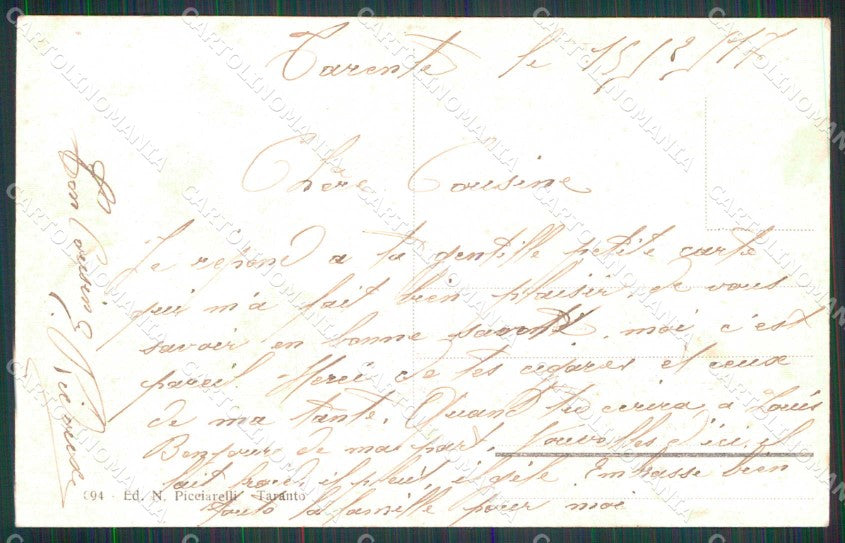 Tarente le 15/2/17
Chere Cousine
Je repond a ta gentille petite carte
qui m'a fait bien plaisir de vous
savoir en bonne santé. moi c'est
pareil. Merci de tes cigares et ceux
de ma tante. Quand tu ecrira a Louis
Bonjour de ma part. Nouvelles d'ici, il
fait froid, il pleut, il gèle. Embrasse bien
toute la famille pour moi
Ton Cousin
94 - Ed. N. Picciarelli - Taranto
CARTOLINOMANIA